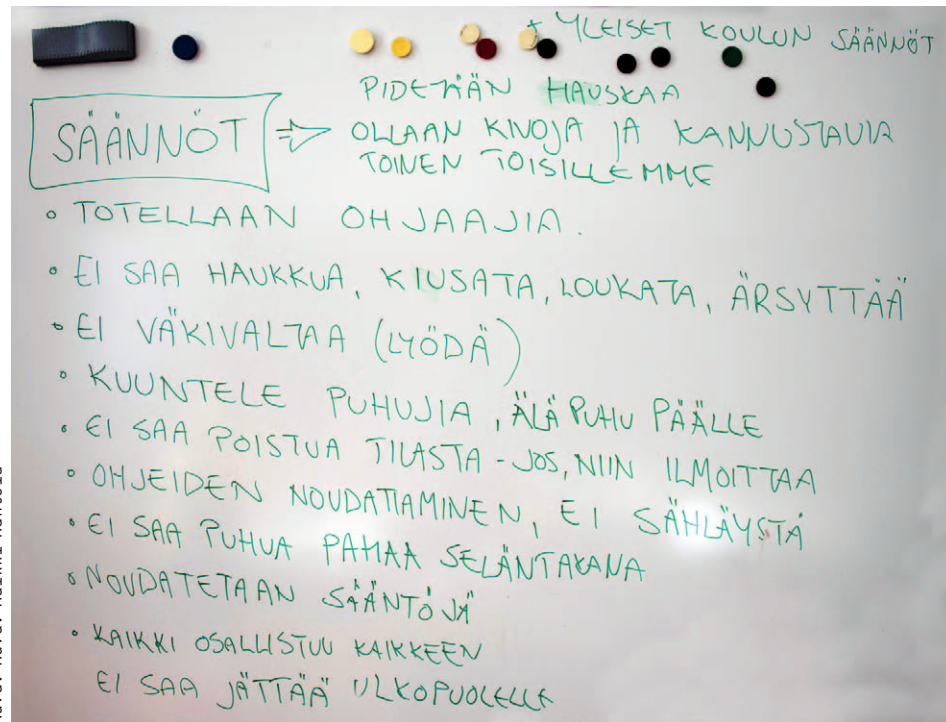 + YLEISET KOULUN SÄÄNNÖT
PIDETÄÄN HAUSKAA
SÄÄNNÖT => OLLAAN KIVOJA JA KANNUSTAVIA
TOINEN TOISILLEMME
• TOTELLAAN OHJAAJIA.
• EI SAA HAUKKUA, KIUSATA, LOUKATA, ÄRSYTTÄÄ
• EI VÄKIVALTAA (LYÖDÄ)
• KUUNTELE PUHUJIA, ÄLÄ PUHU PÄÄLLE
• EI SAA POISTUA TILASTA - JOS, NIIN ILMOITTAA
• OHJEIDEN NOUDATTAMINEN, EI SÄHLÄYSTÄ
• EI SAA PUHUA PAHAA SELÄNTAKANA
• NOUDATETAAN SÄÄNTÖJÄ
• KAIKKI OSALLISTUU KAIKKEEN
EI SAA JÄTTÄÄ ULKOPUOLELLE